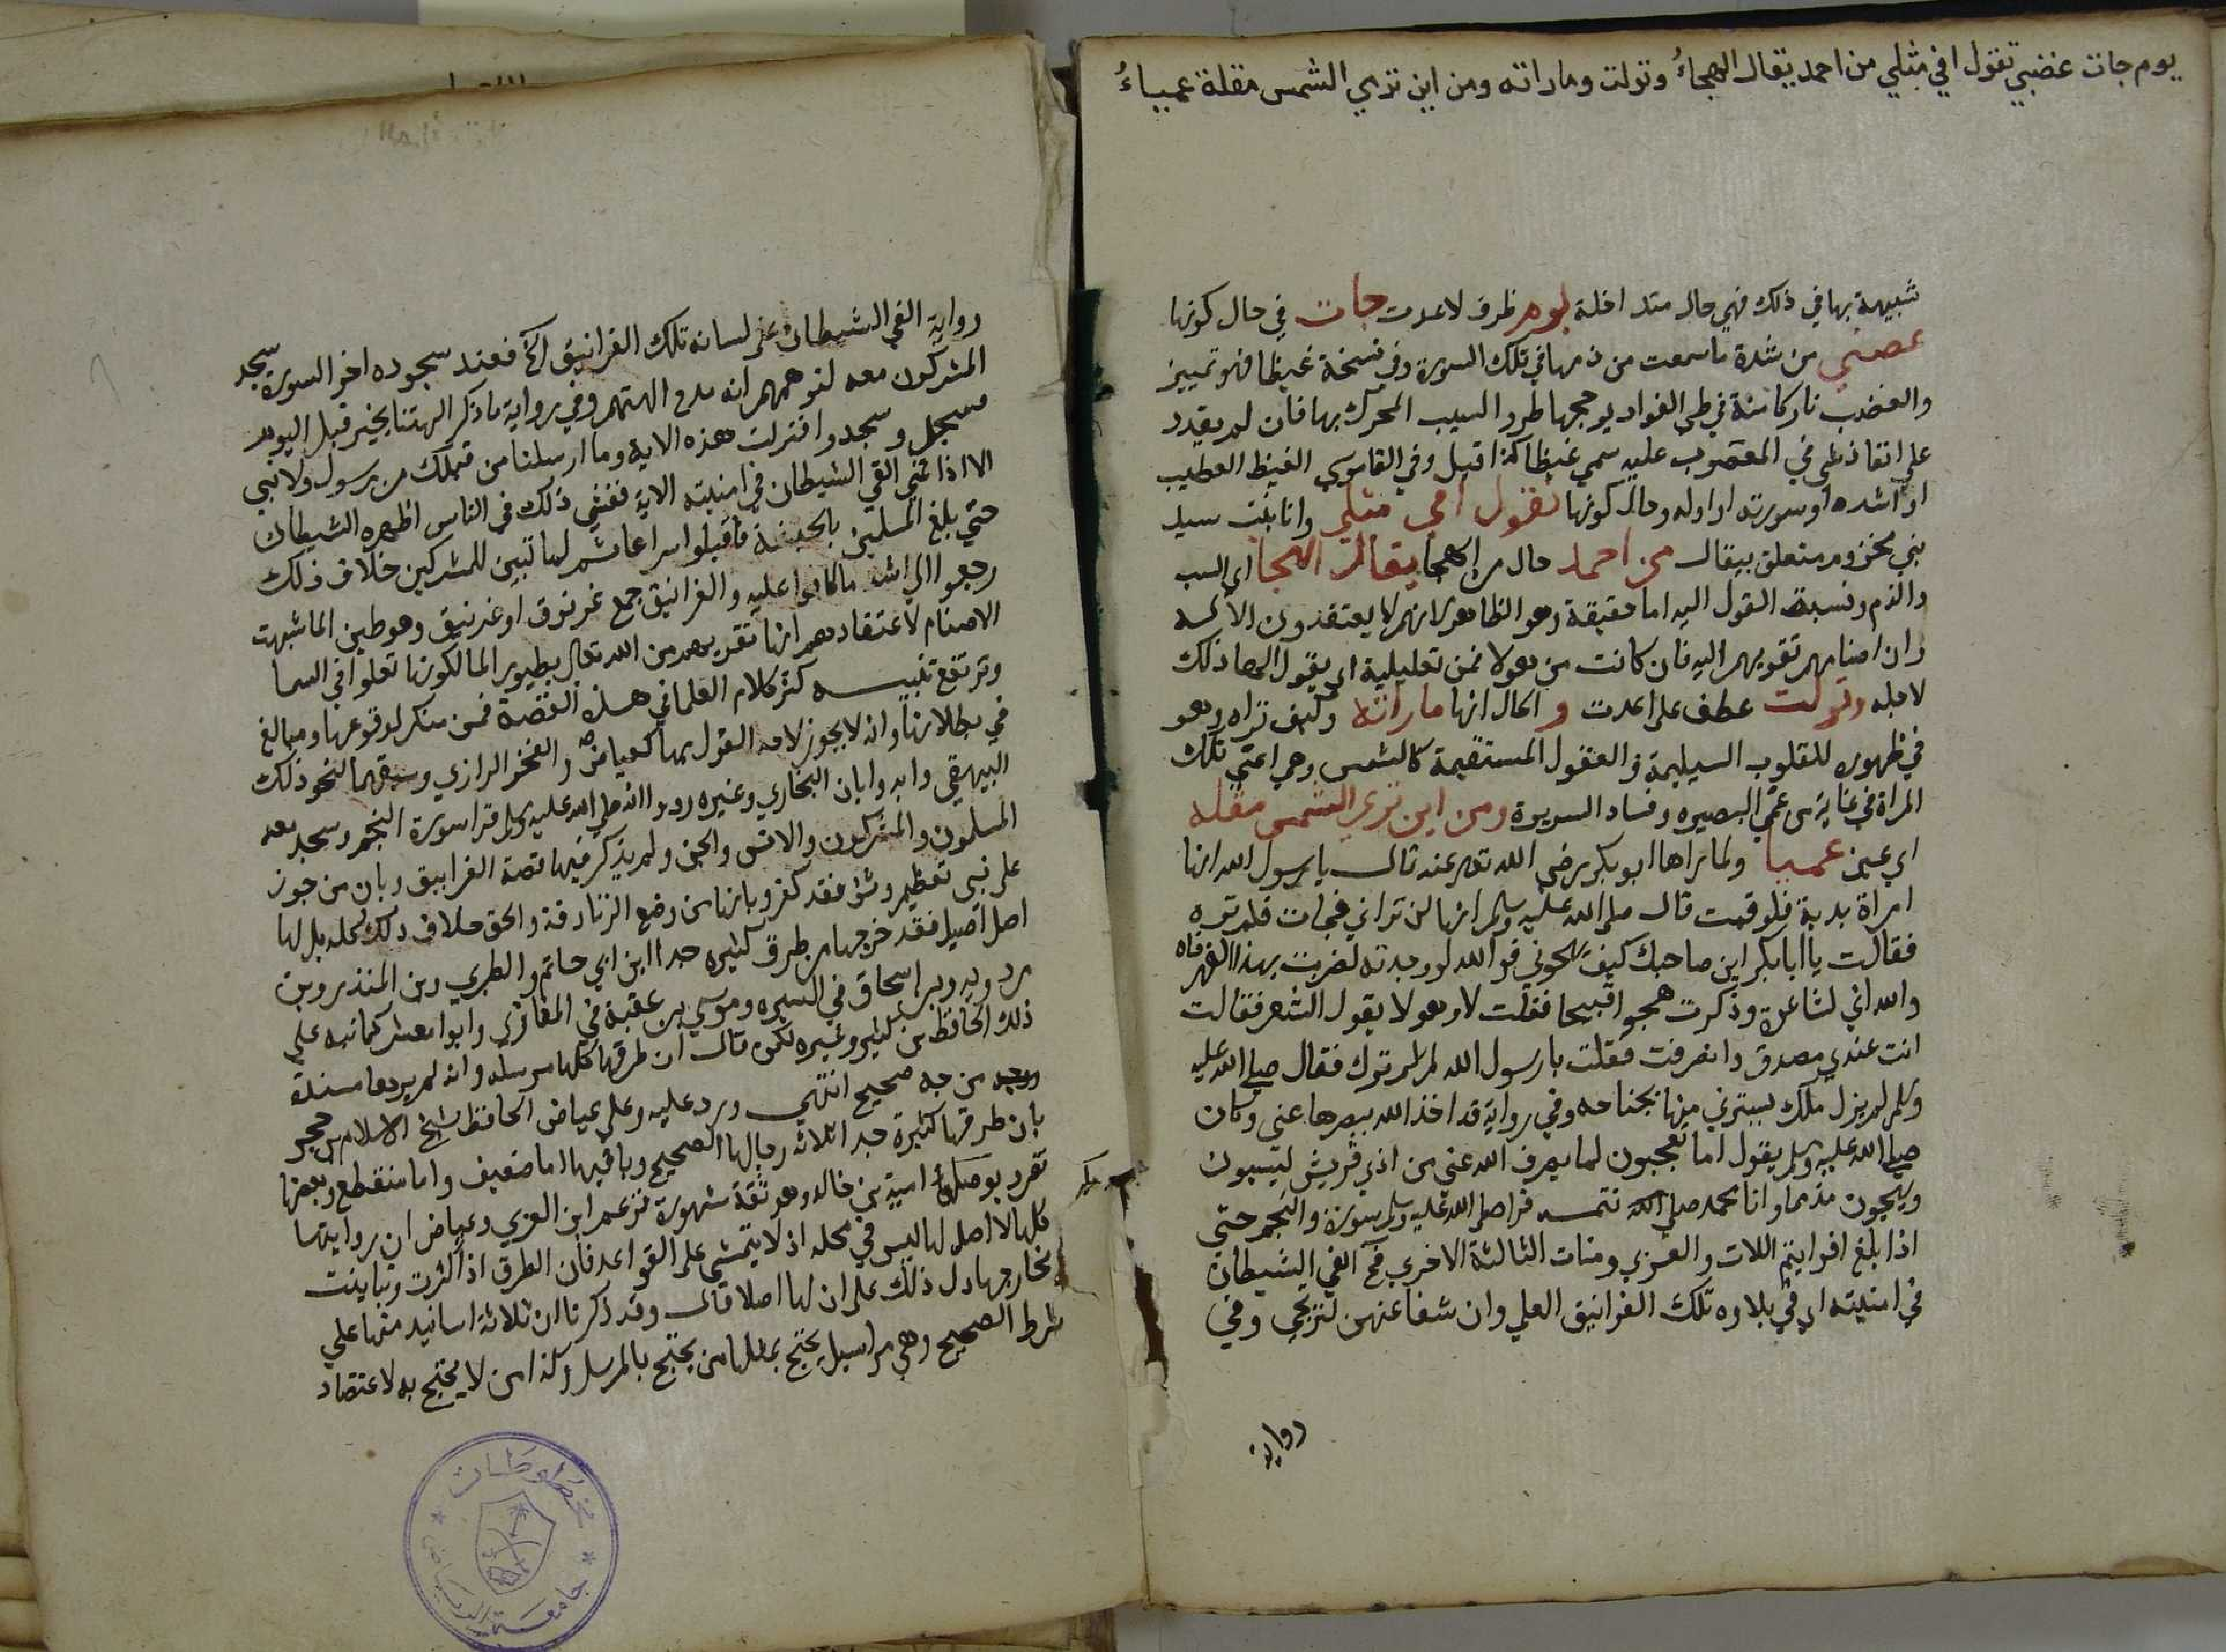 يوم جات غضبي تقول افي مثلي من احمد يقال الهجاءُ وتولت وماراته ومن اين تري الشمس مقلة عمياءُ
شبيهة بها في ذلك فهي حال متداخلة يوم ظرف لاعدت جات في حال كونها
غضبي من شدة ما سمعت من ذمها في تلك السورة وفي نسخة غيظا فهو تمييز
والغضب نار كامنة في طي الفواد يوججها طرو السبب المحرك بها فان لم يقدر
علي انفاذ ظي في المغضوب عليه سمي غيظا كذا قيل وفي القاموس الغيظ الغضب
او اشده او سورته او اوله وحال كونها تقول افي مثلي وانا بنت سيد
بني مخزوم متعلق بيقال من احمد حال من الهجا يقال الهجا اي السب
والذم ونسبة القول اليه اما حقيقة وهو الظاهر لانهم لا يعتقدون الا اله
وان اصنامهم تقربهم اليه فان كانت من هولا فمن تعليلية اي يقول الله ذلك
لاجله وتولت عطف علي اعدت و الحال انها ماراته وكيف تراه وهو
في ظهوره للقلوب السليمة والعقول المستقيمة كالشمس وهي اعني تلك
المراة في غاية من عمي البصيره وفساد السريرة ومن اين تري الشمس مقلة
اي عين عميا ولما راها ابو بكر رضي الله تعالي عنه قال يا رسول الله انها
امراة بدية فلو قمت قال صلي الله عليه وسلم انها لن تراني فجات فلم تره
فقالت يا ابا بكر اين صاحبك كيف يهجوني فو الله لو وجدته لضربت بهذا الفهر فاه
والله اني لشاعرة وذكرت هجوا قبيحا فقلت لا وهو لا يقول الشعر فقالت
انت عندي مصدق وانصرفت فقلت يا رسول الله لم لم ترك فقال صلي الله عليه
وسلم لم يزل ملك يسترني منها بجناحه وفي رواية قد اخذ الله ببصرها عني وكان
صلي الله عليه وسلم يقول اما تعجبون لما يصرف الله عني من اذي قريش يسبون
ويهجون مذمما وانا محمد صلي الله تتمه قرا صلي الله عليه وسلم سورة والنجم حتي
اذا بلغ افرايتم اللات والعزي ومنات الثالثة الاخري فح القي الشيطان
في امنيته اي في تلاوه تلك الغرانيق العلي وان شفاعتهن لترتجي وفي
رواية
رواية القي الشيطان علي لسانه تلك الغرانيق الخ فعند سجوده اخر السورة سجد
المشركون معه لتوهمهم انه مدح الهتهم وفي رواية ما ذكر الهتنا بخير قبل اليوم
فسجد وسجدوا فنزلت هذه الاية وما ارسلنا من قبلك من رسول ولا نبي
الا اذا تمني القي الشيطان في امنيته الاية ففشي ذلك في الناس اظهره الشيطان
حتي بلغ المسلمين بالحبشة فاقبلوا سراعا ثم لما تبين للمشركين خلاف ذلك
رجعوا الي اشد ما كانوا عليه والغرانيق جمع غرنوق او غرنيق وهو طير الما شبهت
الاصنام لاعتقادهم انها تقربهم من الله تعالي بطيور الما لكونها تعلوا في السما
وترتفع تنبيه كثر كلام العلما في هذه القصة فمن منكر لوقوعها ومبالغ
في بطلانها وانه لا يجوز لاحد القول بها كعياض والفخر الرازي وسبقهما لنحو ذلك
البيهقي وايدوا بان البخاري وغيره رووا انه صلي الله عليه وسلم قرا سورة النجم وسجد معه
المسلمون والمشركون والانس والجن ولم يذكر فيها قصة الغرانيق وبان من جوز
علي نبي تعظيم وثن فقد كفر وبانها من وضع الزنادقة والحق خلاف ذلك كله بل لها
اصل اصيل فقد خرجها من طرق كثيره جدا ابن ابي حاتم والطبري وبن المنذر وبن
مردويه وبن اسحاق في السيره وموسي بن عقبة في المغازي وابو معشر كما نبه علي
ذلك الحافظ بن كثير وغيره لكن قال ان طرقها كلها مرسله وانه لم يرها مسندة
من وجه صحيح انتهي ورد عليه وعلي عياض الحافظ شيخ الاسلام بن حجر
بان طرقها كثيرة جدا ثلاثه رجالها الصحيح وباقيها اما ضعيف واما منقطع وبعضها
تفرد بوصله امية بن خالد وهو ثقة مشهورة فزعم ابن العربي وعياض ان روايتها
كلها لا اصل لها ليس في محله اذ لا يتمشي علي القواعد فان الطرق اذا كثرت وتباينت
مخارجها دل ذلك علي ان لها اصلا قال وقد ذكرنا ان ثلاثة اسانيد منها علي
شرط الصحيح وهي مراسيل يحتج بمثلها من يحتج بالمرسل وكذا من لا يحتج به لاعتضاد
مخطوطات
جامعة الرياض